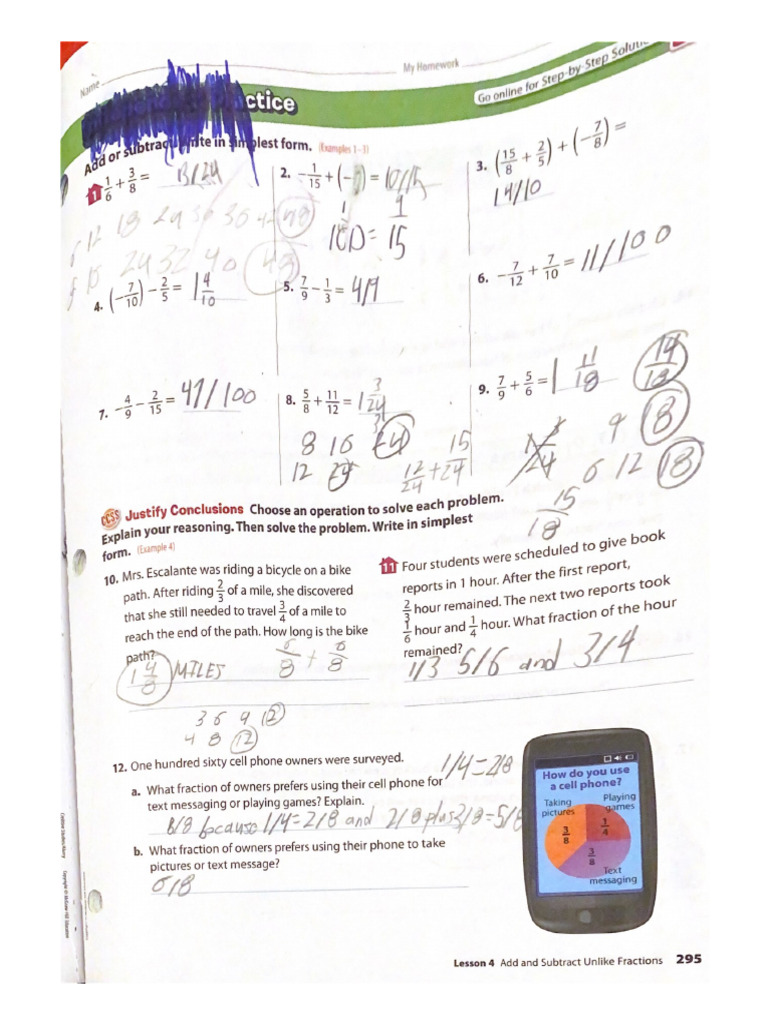 Name
My Homework
ctice
Go online for Step-by-Step Solutio
Add or subtract. Write in simplest form. (Examples 1–3)
1 1/6 + 3/8 = 13/24
2. −1/15 + (− ) = 10/15
3. (15/8 + 2/5) + (−7/8) =
14/10
12 18 24 30 36 42 48
24 32 40 48
15
4. (−7/10) − 2/5 = 1 4/10
5. 7/9 − 1/3 = 4/9
6. −7/12 + 7/10 = 11/100
7. −4/9 − 2/15 = 47/100
8. 5/8 + 11/12 = 1 3/24
9. 7/9 + 5/6 = 1 11/18
8 16 24
12 24
12/24 + 15/24
9 18
6 12 18
15/18
CCSS Justify Conclusions Choose an operation to solve each problem.
Explain your reasoning. Then solve the problem. Write in simplest
form. (Example 4)
10. Mrs. Escalante was riding a bicycle on a bike
path. After riding 2/3 of a mile, she discovered
that she still needed to travel 3/4 of a mile to
reach the end of the path. How long is the bike
path?
1 4/8 MILES
6/8 + 6/8
3 6 9 12
4 8 12
11 Four students were scheduled to give book
reports in 1 hour. After the first report,
2/3 hour remained. The next two reports took
1/6 hour and 1/4 hour. What fraction of the hour
remained?
1/3 5/6 and 3/4
12. One hundred sixty cell phone owners were surveyed.
1/4=2/8
a. What fraction of owners prefers using their cell phone for
text messaging or playing games? Explain.
because 1/4=2/8 and 2/8 plus 3/8=5/8
b. What fraction of owners prefers using their phone to take
pictures or text message?
6/8
How do you use
a cell phone?
Taking
pictures
3/8
Playing
games
1/4
3/8
Text
messaging
Lesson 4 Add and Subtract Unlike Fractions 295